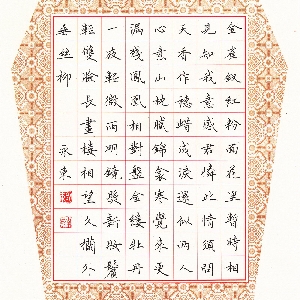 金雀釵紅粉面花裏暫時相
見知我意感君憐此情須問
天香作穗蠟成淚還似兩人
心意山枕膩錦衾寒覺來更
漏殘鳳凰相對盤金縷牡丹
一夜經微雨明鏡照新妝鬢
輕雙臉長畫樓相望久欄外
垂絲柳 永東